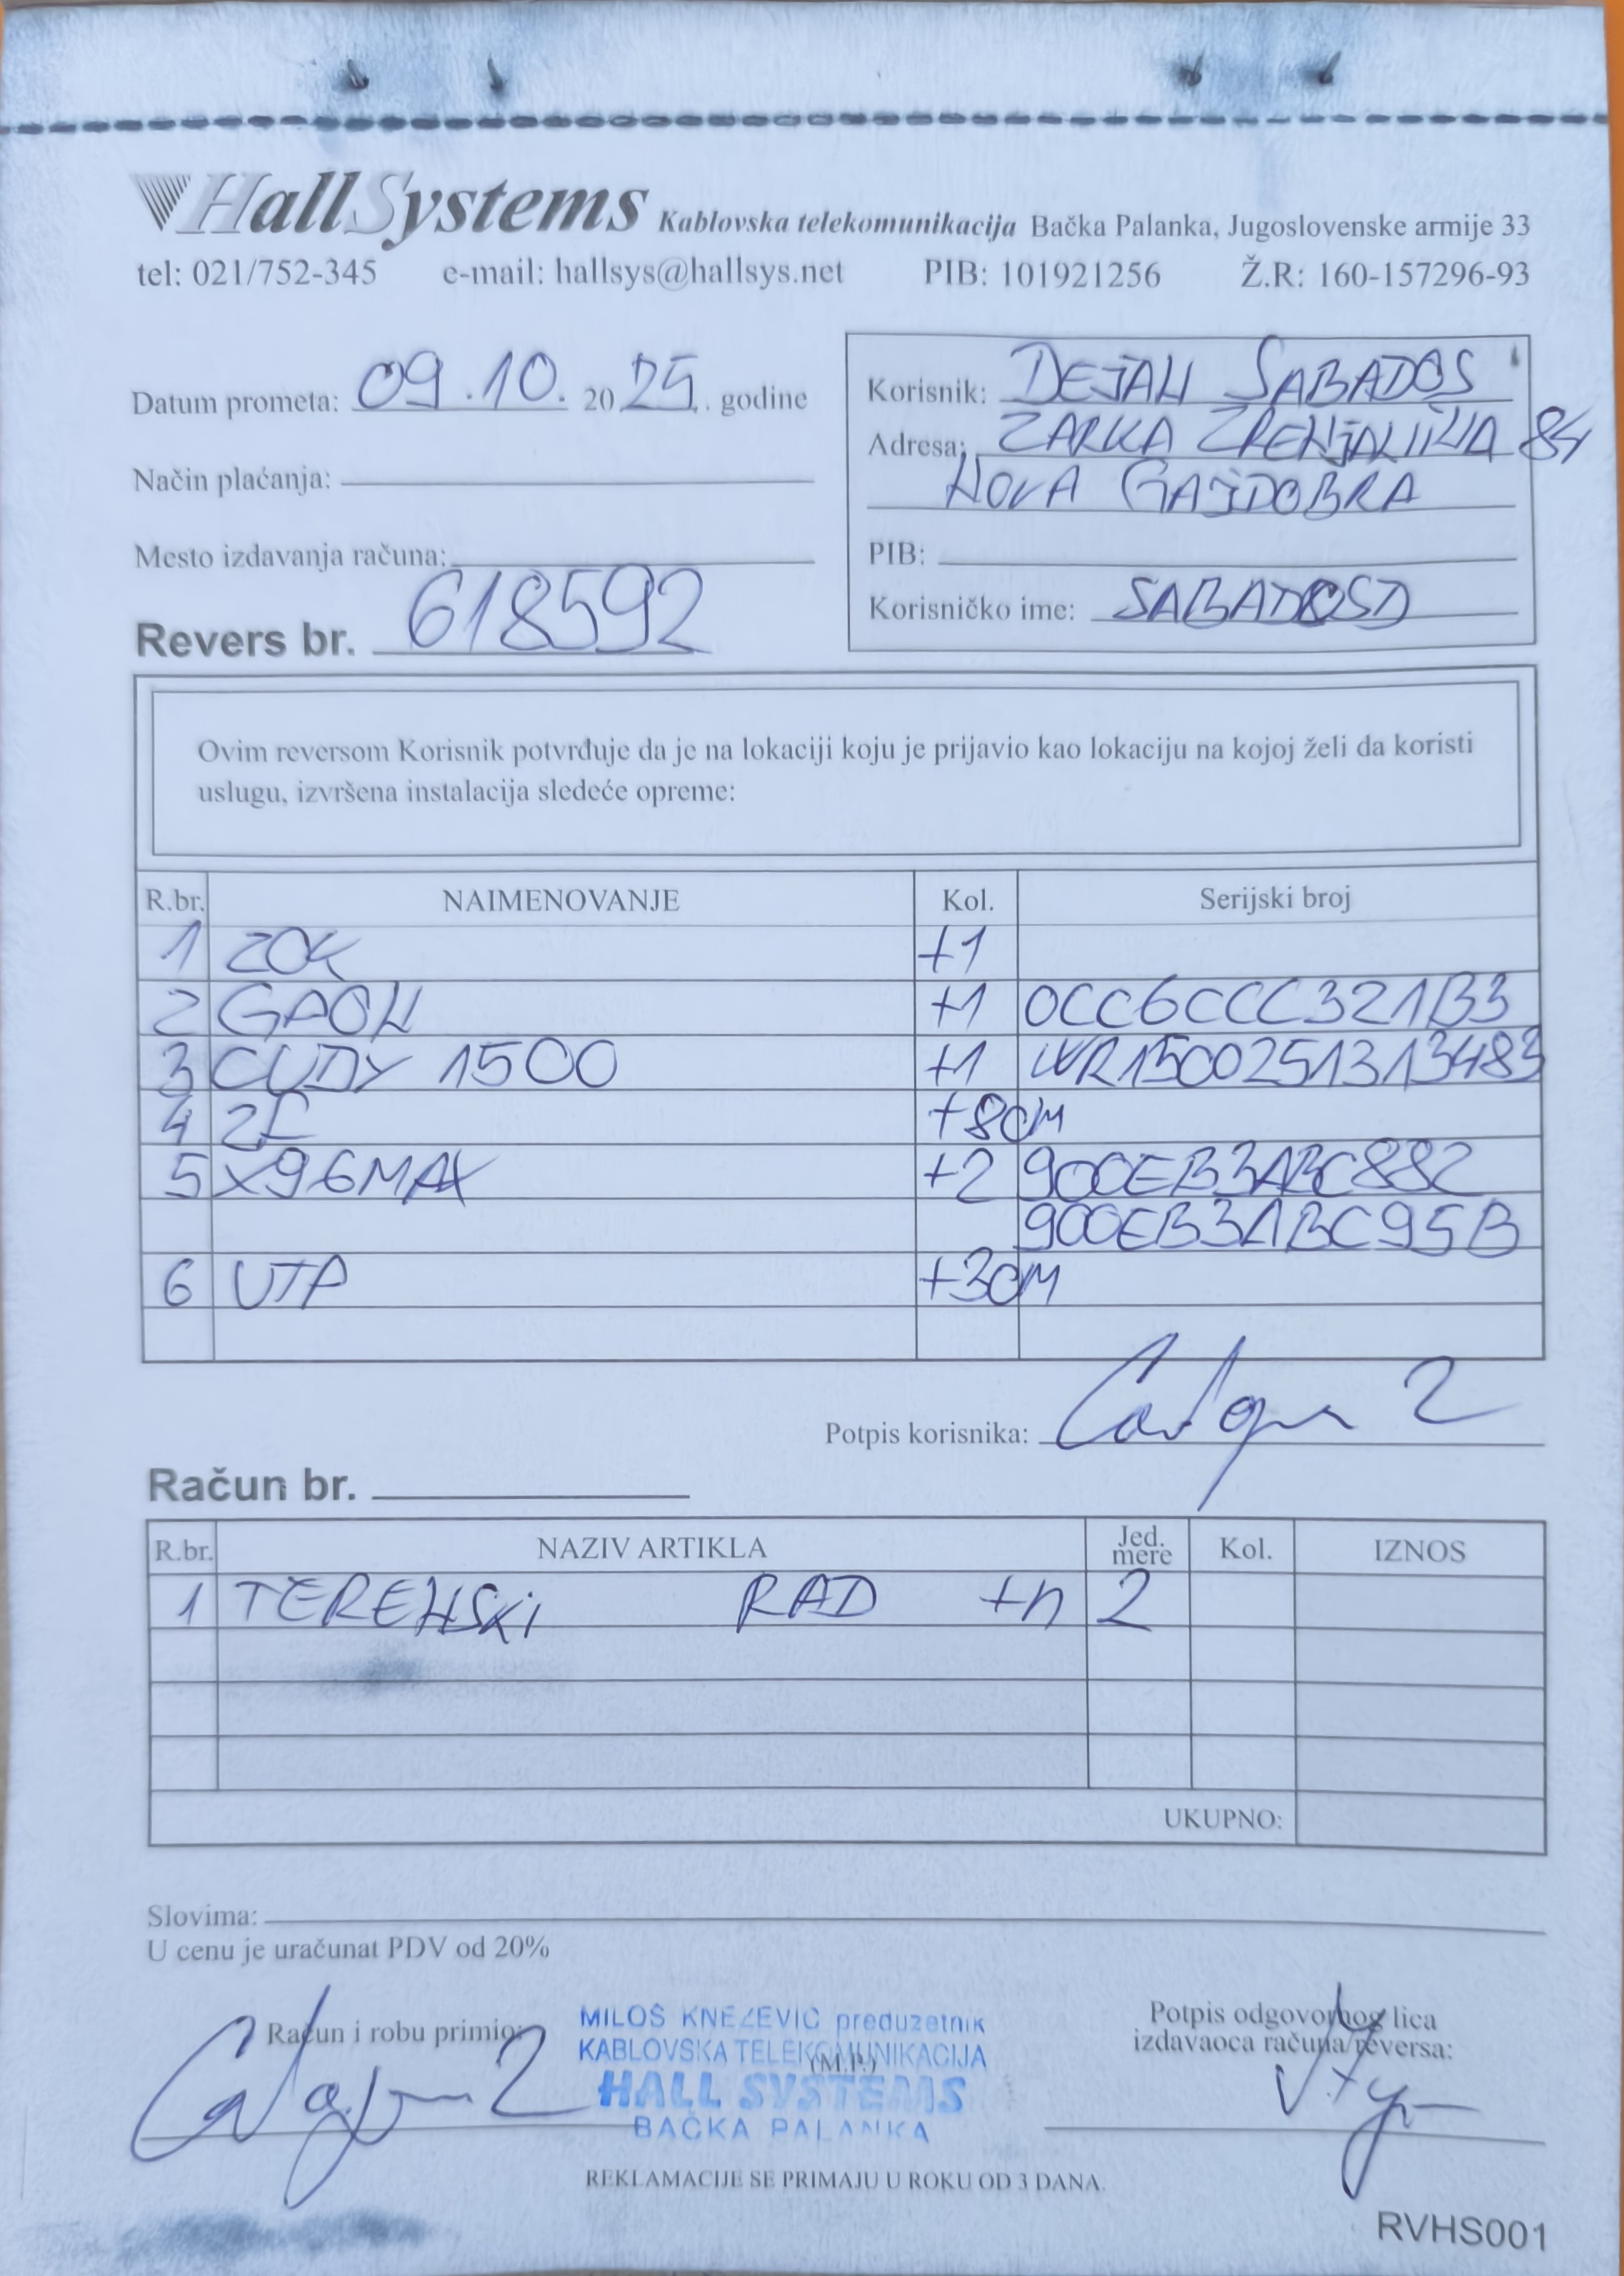 HallSystems Kablovska telekomunikacija Bačka Palanka, Jugoslovenske armije 33
tel: 021/752-345 e-mail: hallsys@hallsys.net PIB: 101921256 Ž.R: 160-157296-93
Datum prometa: 09.10. 2025. godine
Način plaćanja:
Mesto izdavanja računa:
Revers br. 618592
Korisnik: DEJAN SABADOS
Adresa: ZARKA ZRENJANINA 84
NOVA GAJDOBRA
PIB:
Korisničko ime: SABADOSD
Ovim reversom Korisnik potvrđuje da je na lokaciji koju je prijavio kao lokaciju na kojoj želi da koristi
uslugu, izvršena instalacija sledeće opreme:
R.br. NAIMENOVANJE Kol. Serijski broj
1 ZOK +1
2 GPON +1 0CC6CCC321B3
3 CUDY 1500 +1 WR1500251313483
4 2F +80M
5 X96MAX +2 900EB3ABC882
900EB3ABC95B
6 UTP +30M
Potpis korisnika:
Račun br.
R.br. NAZIV ARTIKLA Jed. mere Kol. IZNOS
1 TERENSKI RAD +n 2
UKUPNO:
Slovima:
U cenu je uračunat PDV od 20%
Račun i robu primio:
MILOŠ KNEZEVIĆ preduzetnik
KABLOVSKA TELEKOMUNIKACIJA
(M.P.)
HALL SYSTEMS
BAČKA PALANKA
Potpis odgovornog lica
izdavaoca računa/reversa:
REKLAMACIJE SE PRIMAJU U ROKU OD 3 DANA.
RVHS001